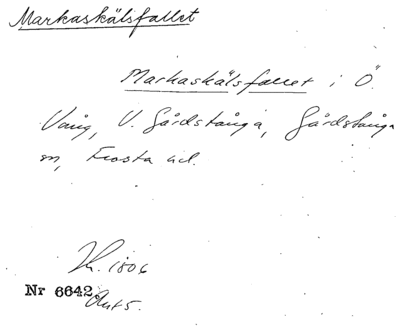 Markaskälsfallet
Markaskälsfallet i Ö.
Vång, V. Gårdstånga, Gårdstånga
sn, Frosta hd.
1806
Nr 6642